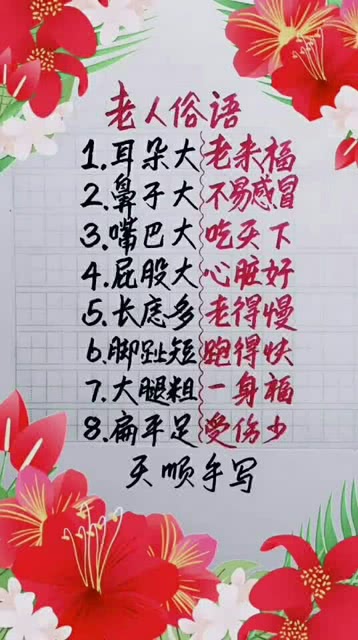 老人俗语
1.耳朵大 老来福
2.鼻子大 不易感冒
3.嘴巴大 吃天下
4.屁股大 心脏好
5.长痣多 老得慢
6.脚趾短 跑得快
7.大腿粗 一身福
8.扁平足 受伤少
天顺手写